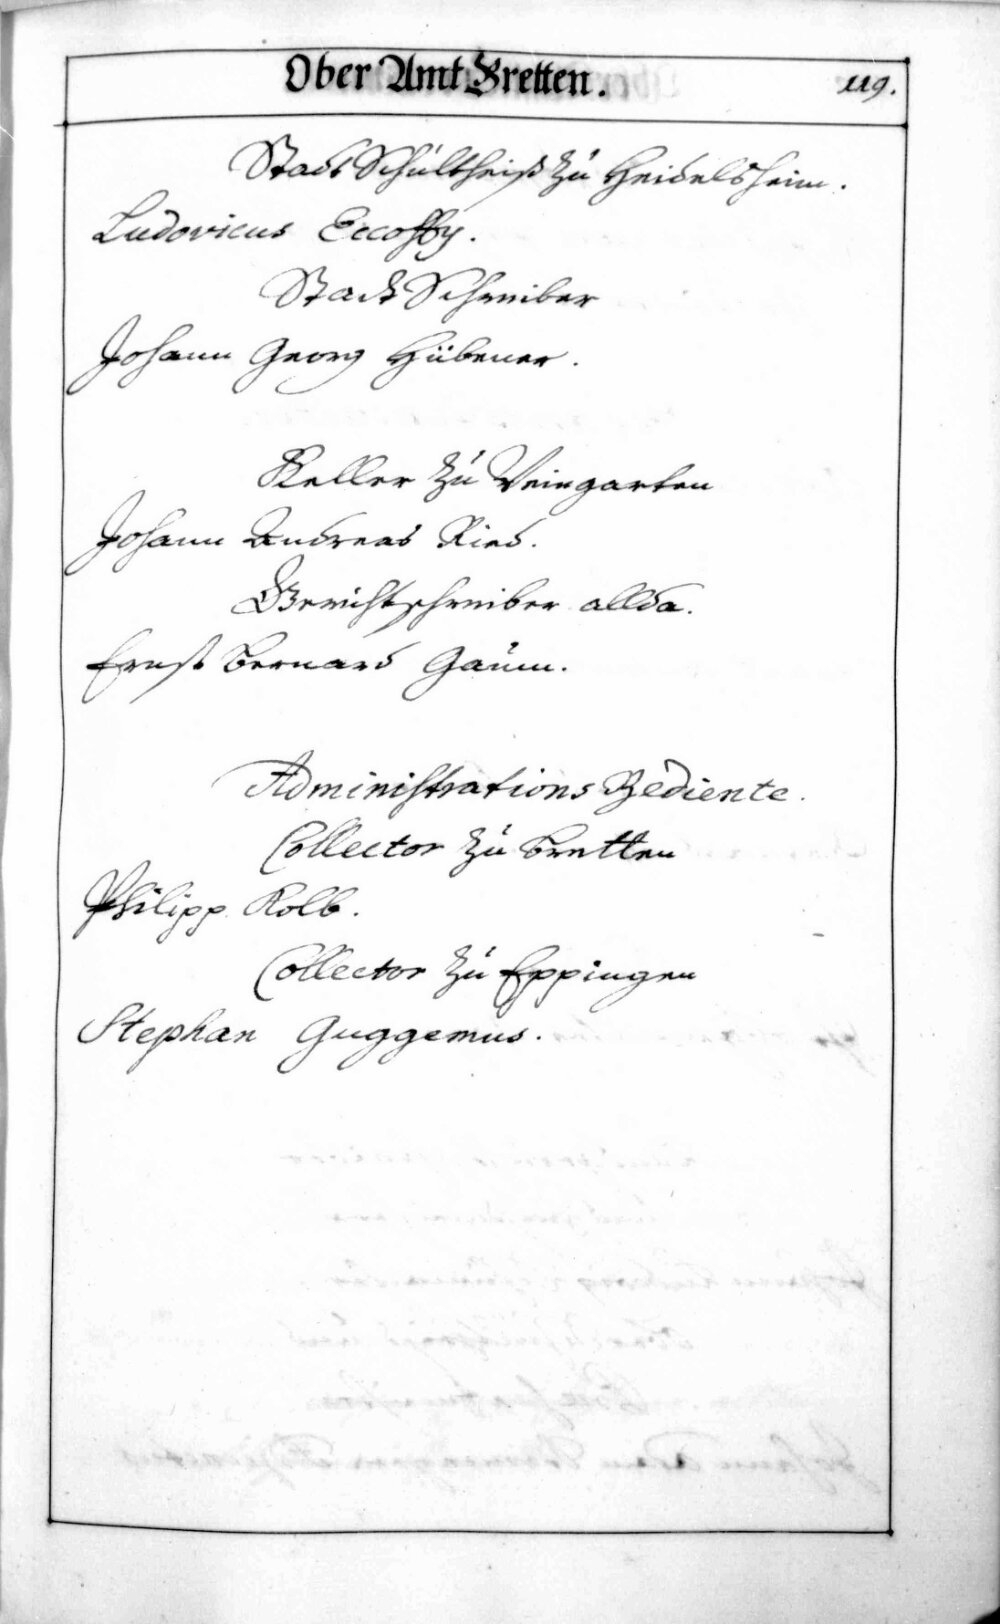 Ober Amt Bretten.
119.
Stadt Schultheiß zu Heidelsheim.
Ludovicus Eccoffy.
Stadt Schreiber
Johann Georg Hübener.
Keller zu Weingarten
Johann Andreas Ried.
Gerichtschreiber allda.
Ernst Bernard Gaum.
Administrations Bediente.
Collector zu Bretten
Philipp Kolb.
Collector zu Eppingen
Stephan Guggemus.